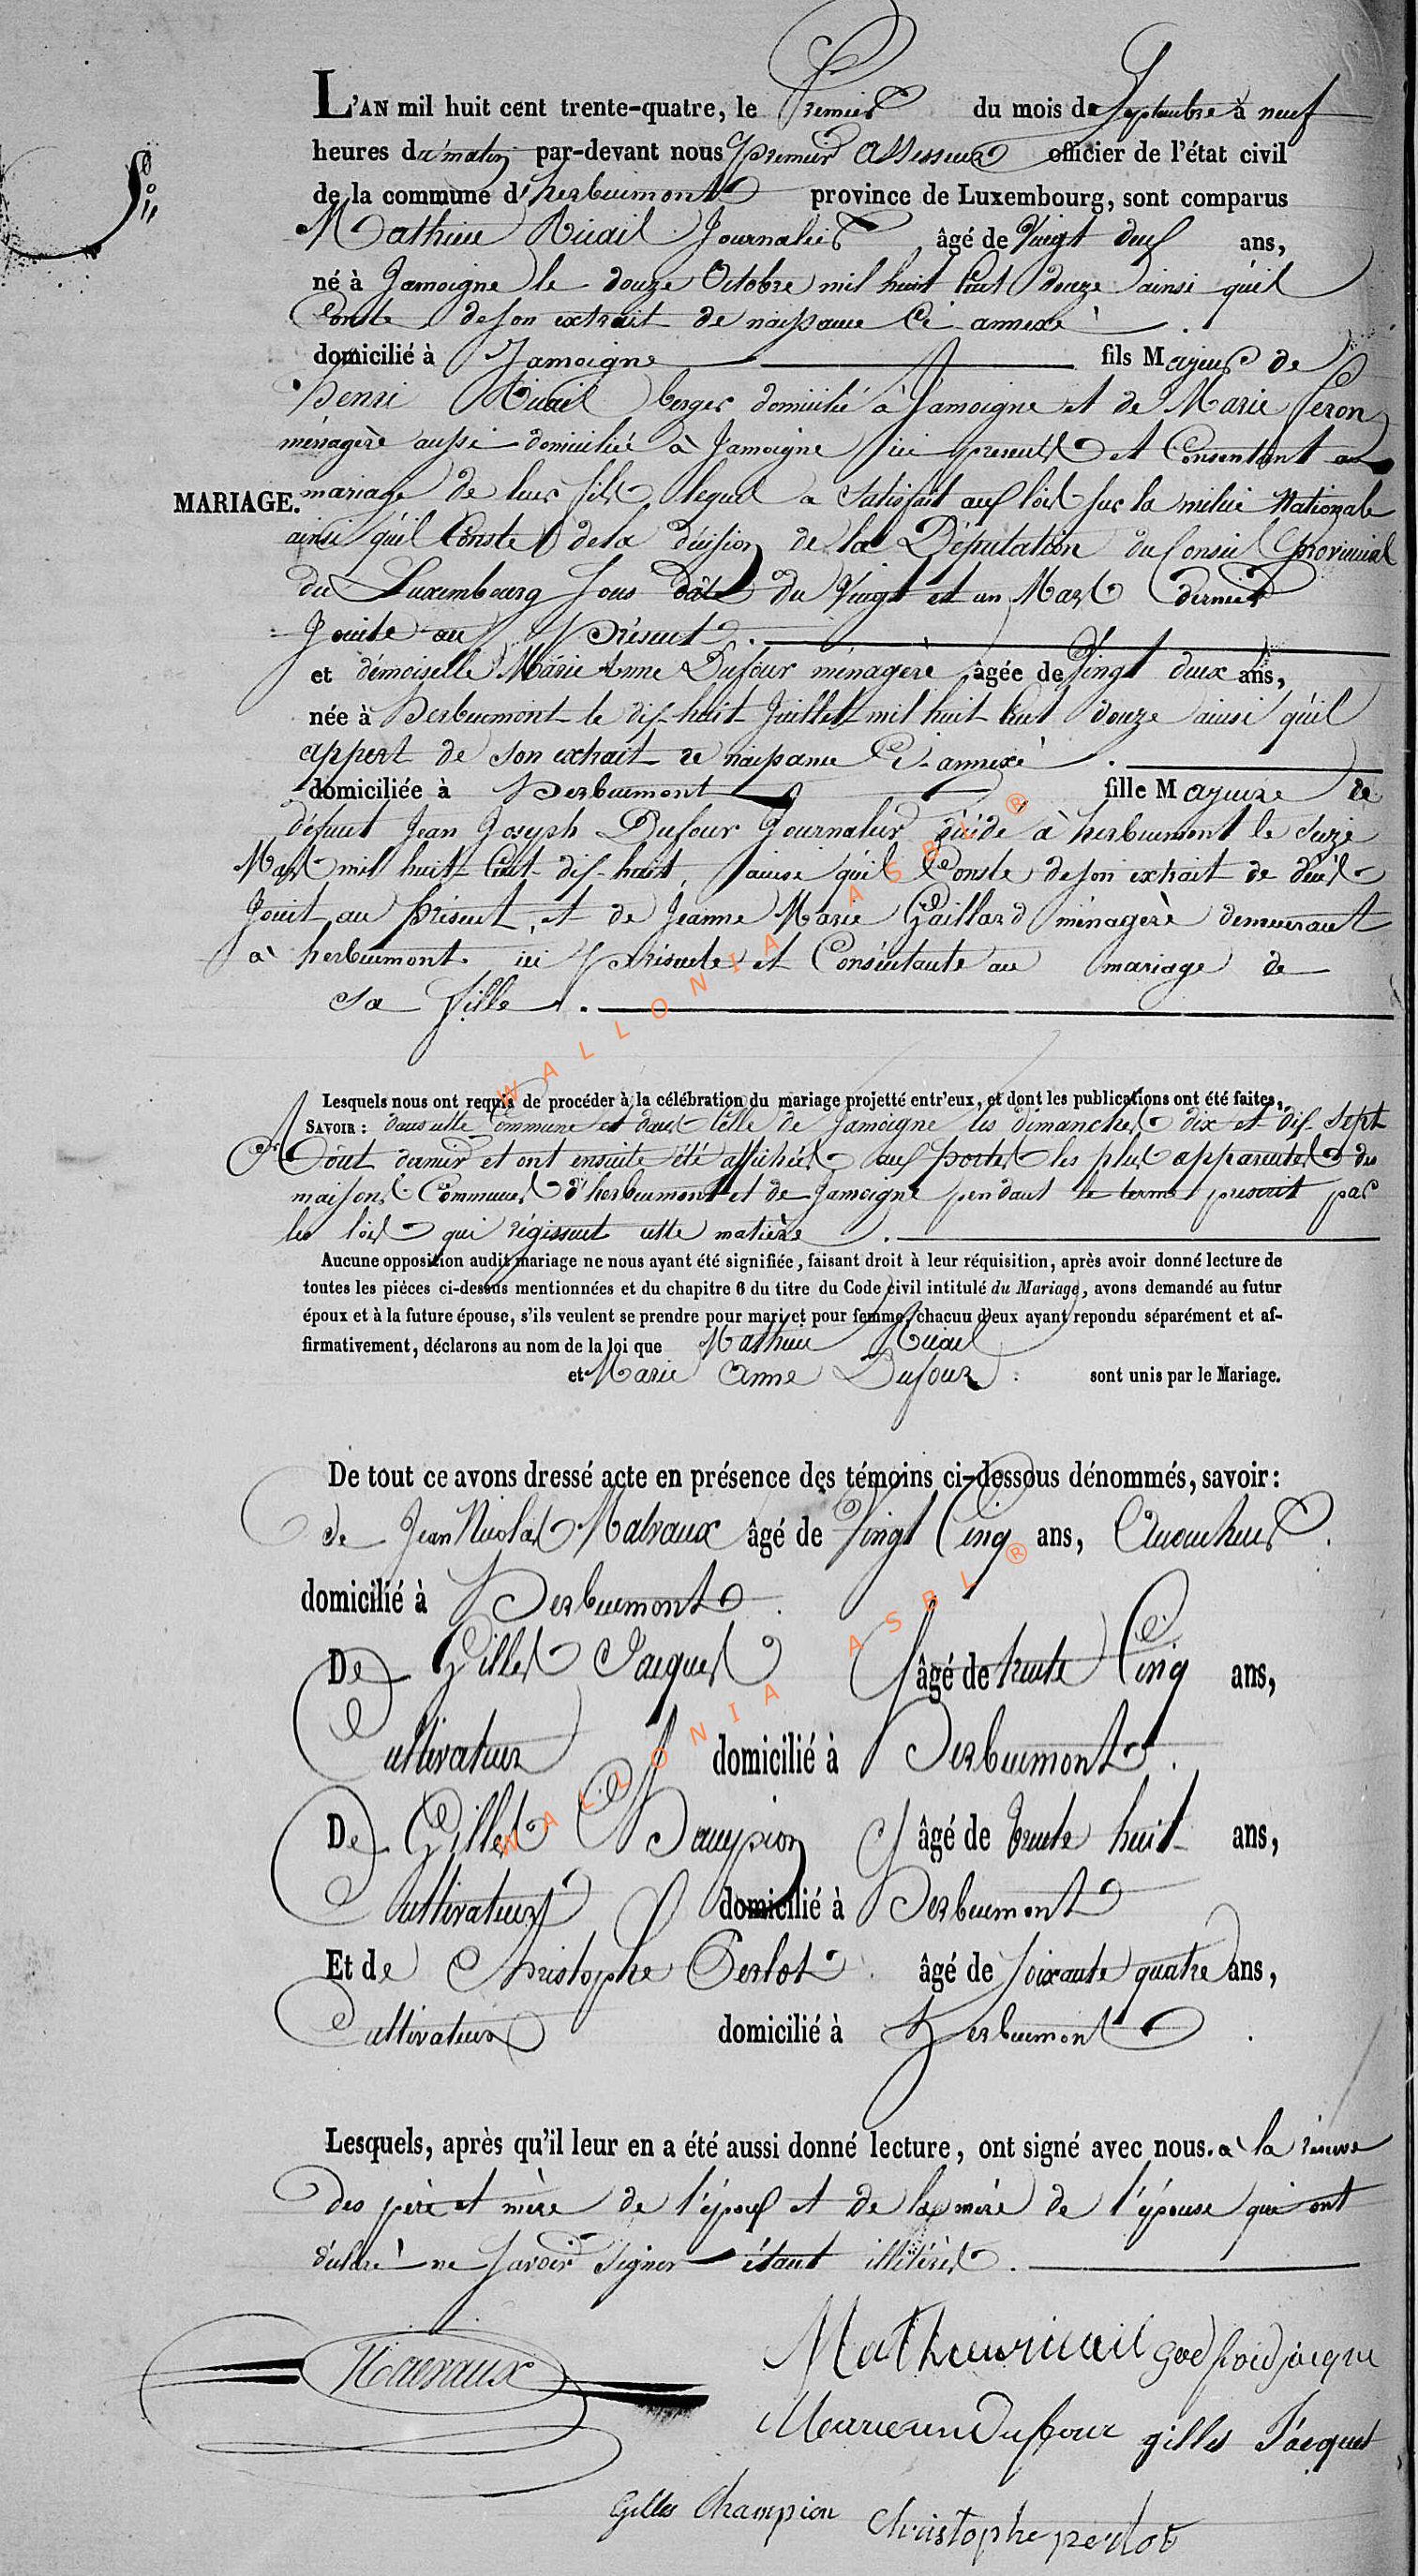 L'AN mil huit cent trente-quatre, le Premier du mois de Septembre à neuf
heures du matin par-devant nous premier assesseur officier de l'état civil
de la commune d'herbeumont province de Luxembourg, sont comparus
Mathieu Ricail Journalier âgé de Vingt deux ans,
né à Jamoigne le douze Octobre mil huit Cent douze ainsi qu'il
Conste de son extrait de naissance Ci annexé
domicilié à Jamoigne fils Majeur de
henri Ricail berger domicilié à Jamoigne et de Marie Peron
ménagère aussi domiciliée à Jamoigne ici presents et Consentant au
MARIAGE.
mariage de leur fils lequel a satisfait aux lois sur la milice Nationale
ainsi qu'il Conste de la décision de la Députation du Conseil provincial
du Luxembourg sous date du Vingt et un Mars dernier
Jointe au présent.
et démoiselle Marie Anne Dufour ménagère âgée de Vingt deux ans,
née à herbeumont le dix-huit Juillet mil huit Cent douze ainsi qu'il
appert de son extrait de naissance Ci-annexé.
domiciliée à herbeumont fille Majeure de
défunt Jean Joseph Dufour Journalier décédé à herbeumont le seize
Mars mil huit Cent dix-huit, ainsi qu'il Conste de son extrait de décès
Joint au présent, et de Jeanne Marie Gaillard ménagère demeurant
à herbeumont ici présente et Consentante au mariage de
sa fille.
Lesquels nous ont requis de procéder à la célébration du mariage projetté entr'eux, et dont les publications ont été faites,
SAVOIR : dans cette Commune et dans Celle de Jamoigne les dimanches dix et dix-sept
Août dernier et ont ensuite été affichées aux portes les plus apparentes des
maisons Communes d'herbeumont et de Jamoigne pendant le terme prescrit par
les lois qui régissent cette matière.
Aucune opposition audit mariage ne nous ayant été signifiée, faisant droit à leur réquisition, après avoir donné lecture de
toutes les pièces ci-dessus mentionnées et du chapitre 6 du titre du Code civil intitulé du Mariage, avons demandé au futur
époux et à la future épouse, s'ils veulent se prendre pour mari et pour femme, chacuu d'eux ayant repondu séparément et af-
firmativement, déclarons au nom de la loi que Mathieu Ricail
et Marie Anne Dufour sont unis par le Mariage.
De tout ce avons dressé acte en présence des témoins ci-dessous dénommés, savoir :
de Jean Nicolas Malvaux âgé de Vingt Cinq ans, Accoucheur.
domicilié à herbeumont.
De Gilles Jacques âgé de trente Cinq ans,
Cultivateur domicilié à herbeumont.
De Gilles Champion âgé de trente huit ans,
Cultivateur domicilié à herbeumont
Et de Christophe Perlot âgé de soixante quatre ans,
Cultivateur domicilié à herbeumont.
Lesquels, après qu'il leur en a été aussi donné lecture, ont signé avec nous. à la réserve
des père et mère de l'époux et de la mère de l'épouse qui ont
déclaré ne savoir signer étant illétérés.
Mathieu ricail godfroid jacque
Marieann Dufour gilles Jacques
Gilles Champion Christophe perlot
WALLONIA ASBL ®
WALLONIA ASBL ®